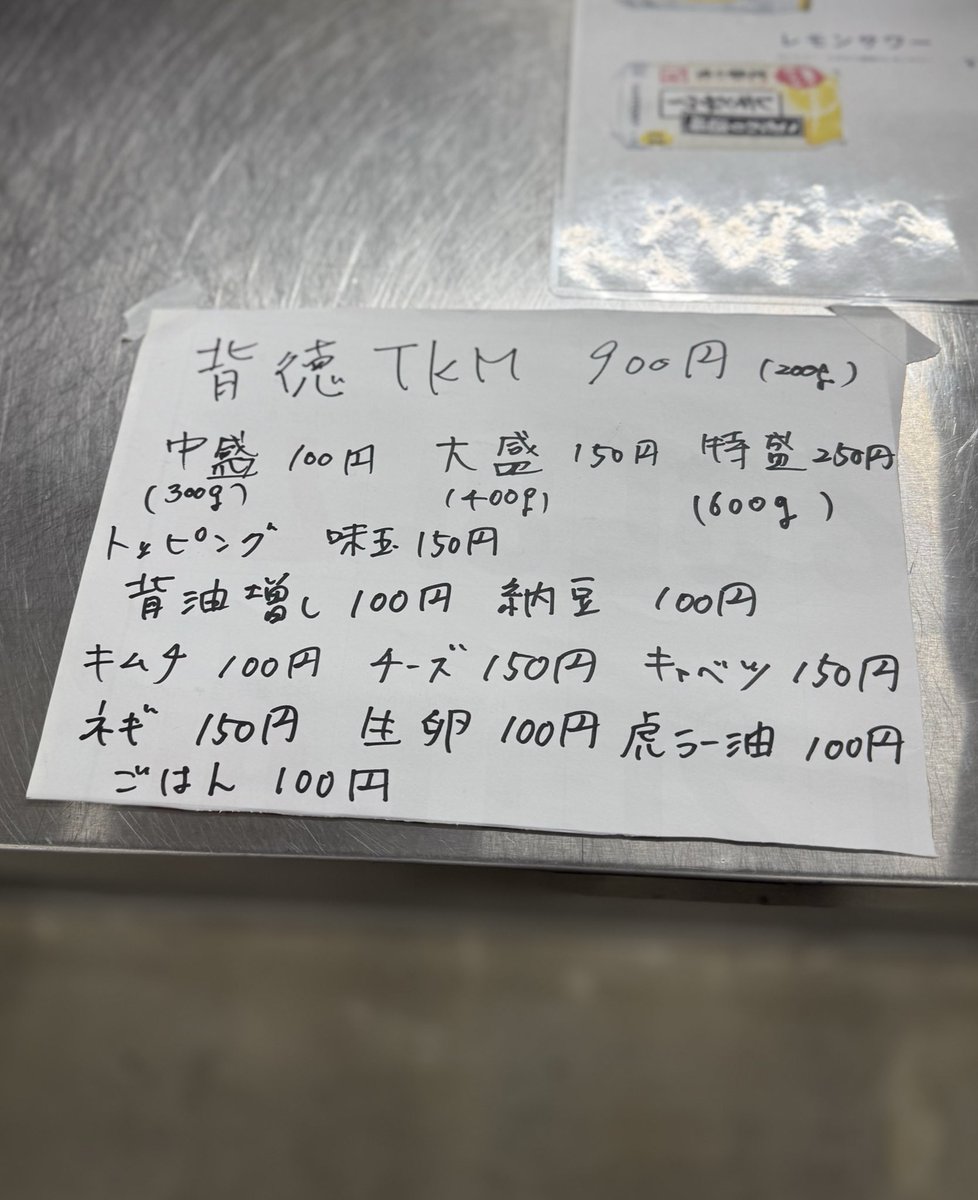 レモンサワー
背徳TKM 900円 (200g)
中盛 100円 大盛 150円 特盛 250円
(300g) (400g) (600g)
トッピング 味玉 150円
背油増し 100円 納豆 100円
キムチ 100円 チーズ 150円 キャベツ 150円
ネギ 150円 生卵 100円 虎ラー油 100円
ごはん 100円